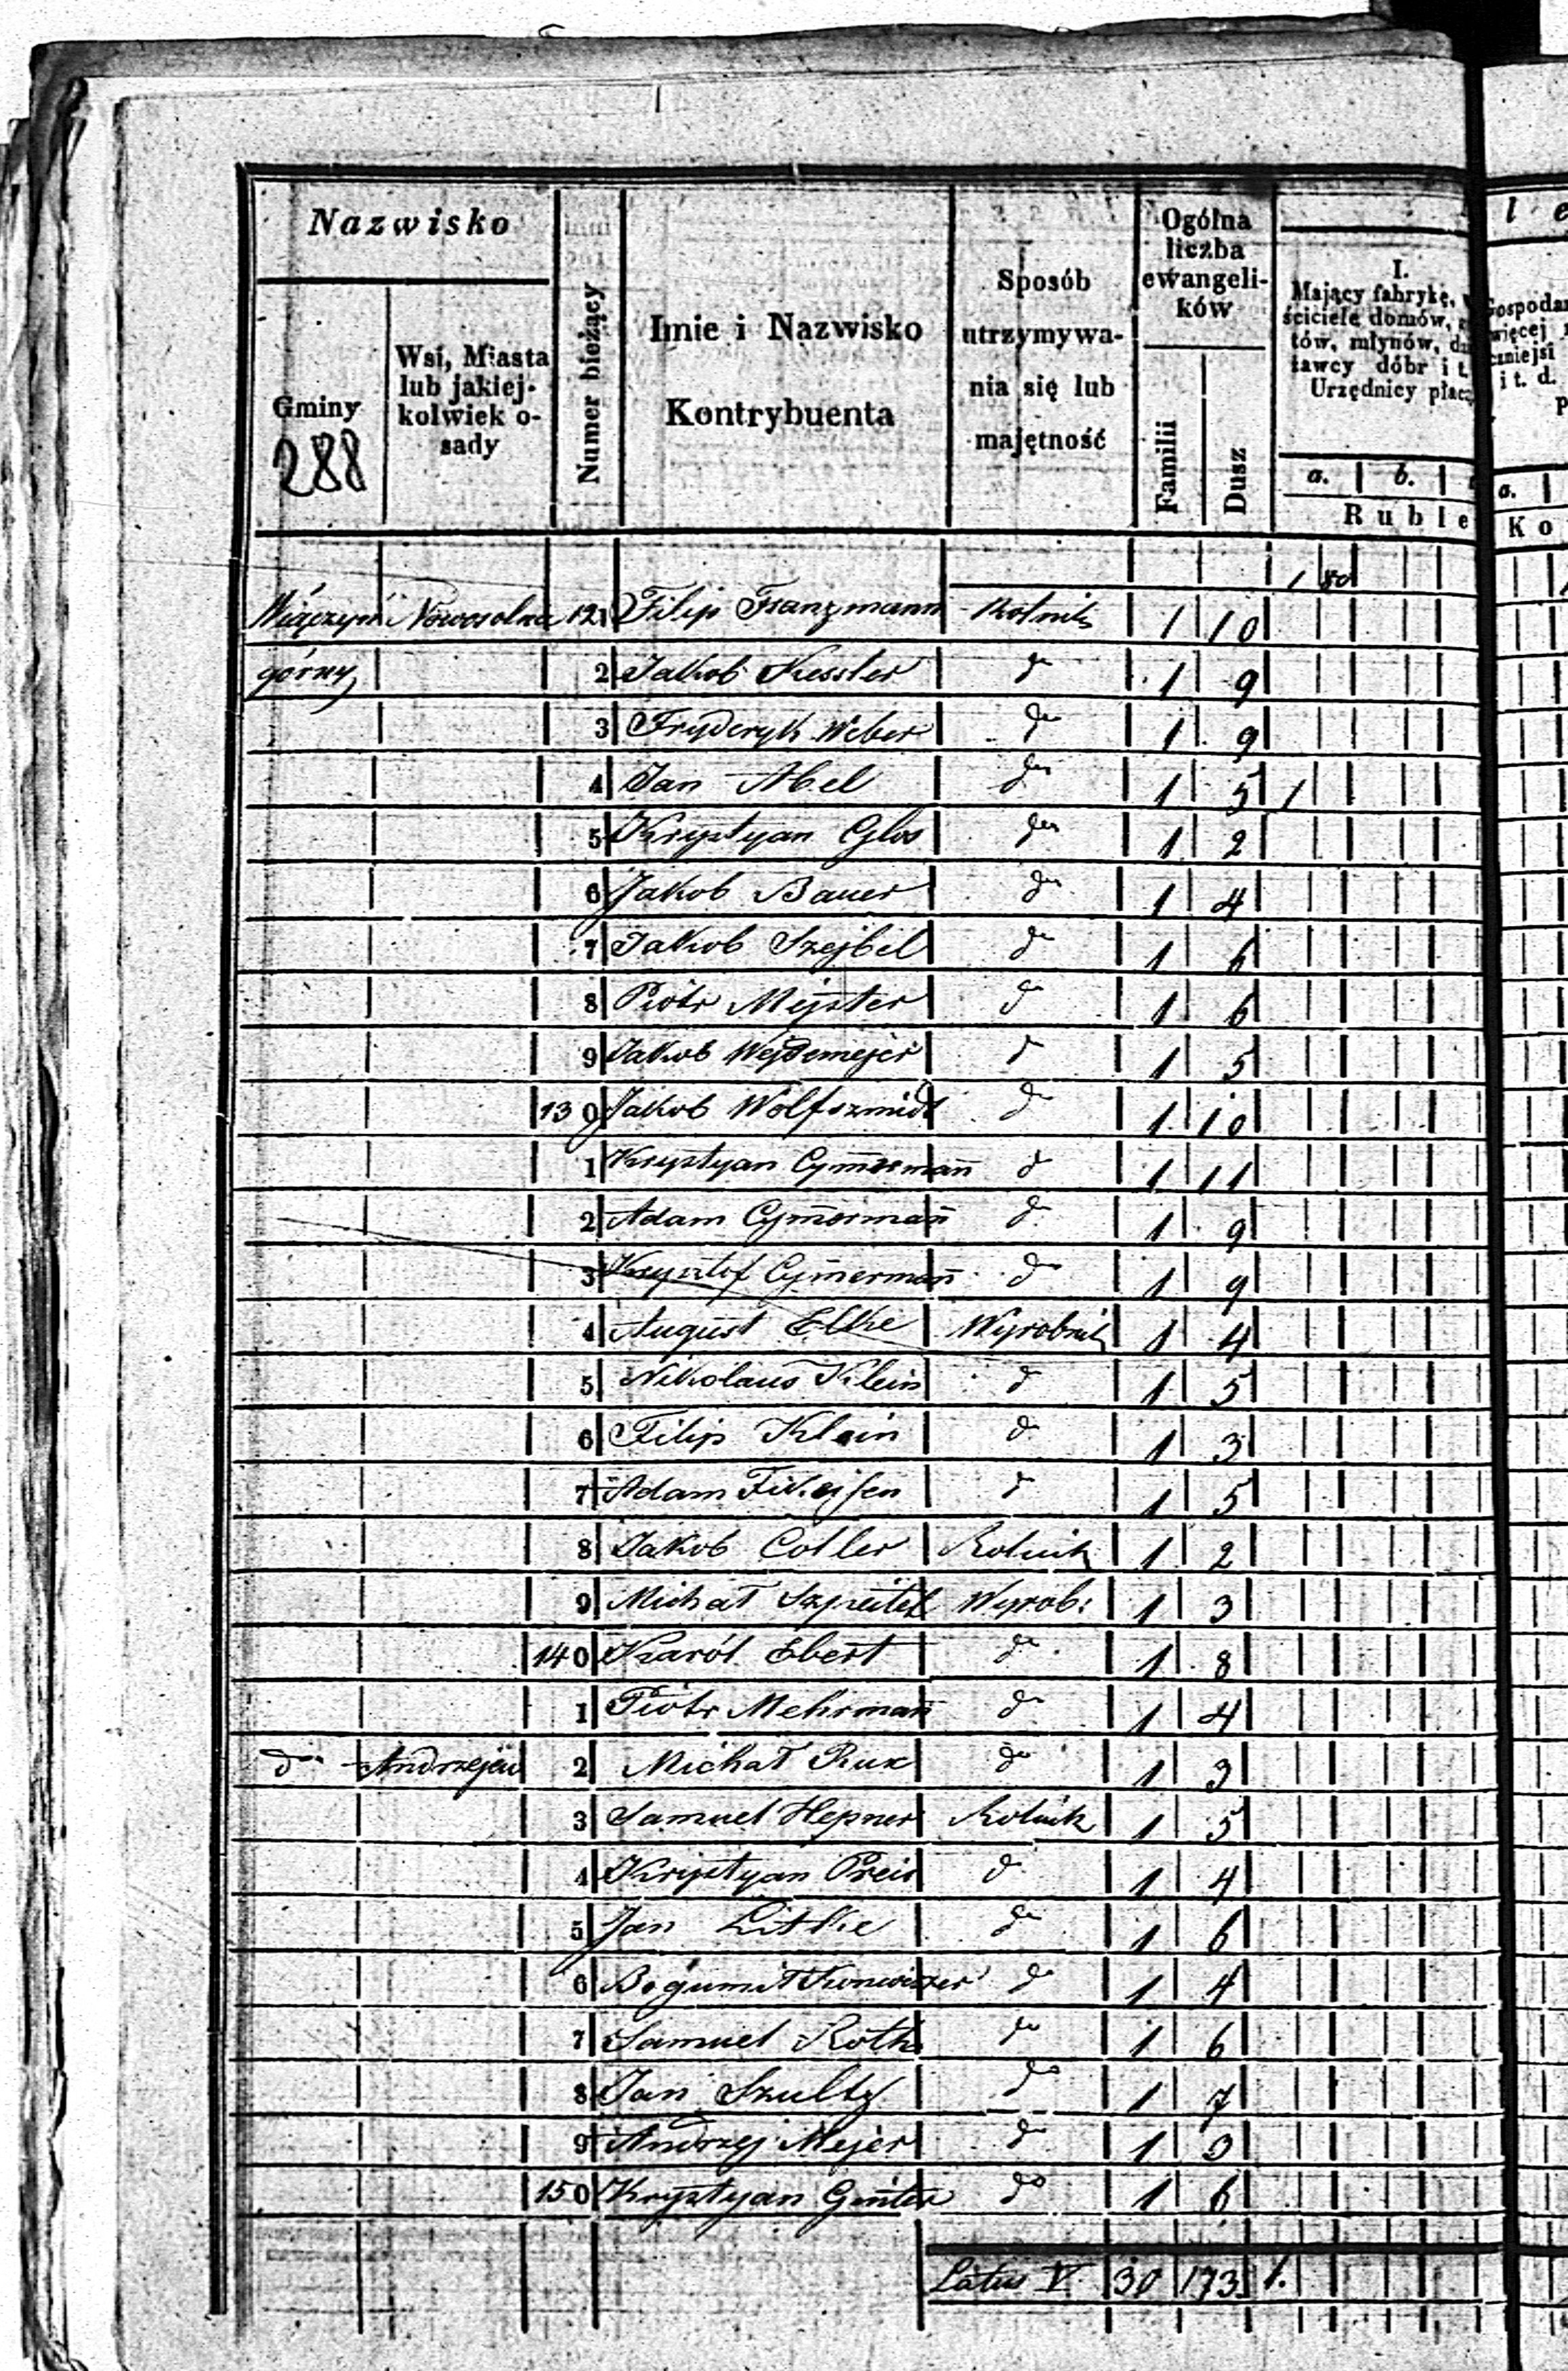 Nazwisko
Gminy
288
Wsi, Miasta
lub jakiej-
kolwiek o-
sady
Numer bieżący
Imie i Nazwisko
Kontrybuenta
Sposób
utrzymywa-
nia się lub
majętność
Ogólna
liczba
ewangeli-
ków
Familii
Dusz
I.
Mający fabrykę,
ściciele domów,
tów, młynów,
żawcy dóbr i t.
Urzędnicy płac
a. b.
Ruble
l e
Gospoda
więcej
czniejsi
i t. d.
P
a.
Ko
1 80
Wiączyń Nowosolna 121 Filip Franzmann Rolnik 1 10
górny 2 Jakob Kessler do 1 9
3 Fryderyk Weber do 1 9
4 Jan Abel do 1 5 1
5 Krystyan Glos do 1 2
6 Jakob Bauer do 1 4
7 Jakob Szejbel do 1 6
8 Piotr Mejster do 1 6
9 Jakob Wejdemejer do 1 5
130 Jakob Wolfszmidt do 1 10
1 Krystyan Cymerman̄ do 1 11
2 Adam Cym̄erman̄ do 1 9
3 Krysztof Cym̄erman̄ do 1 9
4 August Elke Wyrobnik 1 4
5 Nikolaus Klein do 1 5
6 Filip Klein do 1 3
7 Adam Fikejsen do 1 5
8 Jakob Cotler Rolnik 1 2
9 Michał Szpeitel Wyrob: 1 3
140 Karól Ebert do 1 8
1 Piotr Mehrman̄ do 1 4
do Andrzejew 2 Michał Rux do 1 3
3 Samuel Hepner Rolnik 1 5
4 Krystyan Preis do 1 4
5 Jan Litke do 1 6
6 Bogumił do 1 4
7 Samuel Roth do 1 6
8 Jan Szultz do 1 7
9 Andrzej Mejer do 1 3
150 Krystyan Ginter do 1 6
Latus V. 30 173 1.